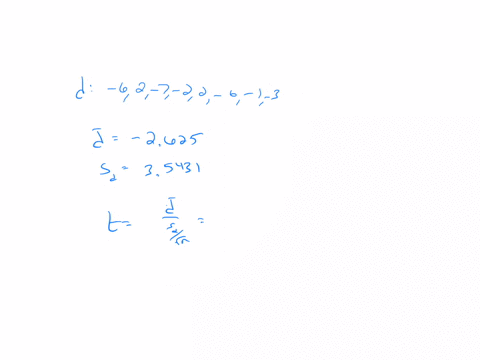 d: -6, 2, -7, -2, 2, -6, -1, -3
d̄ = -2.625
s_d = 3.5431
t = d̄ / (s_d/√n) =